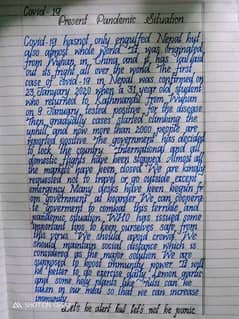 Covid-19
Present Pandemic Situation
Covid-19 hasnot only engulfed Nepal but
also almost whole world. It was originated
from Wuhan, in China, and it has laid
out its fright all over the world. The first
case of covid-19 in Nepal was confirmed on
23 January 2020 when a 31 year old student
who returned to Kathmandu from Wuhan
on 9 January tested positive for the disease
Then gradually cases started climbing the
uphill, and now more than 2000 people are
reported positive. The government has decided
to lock the country. International and all
domestic flights have been stopped. Almost all
the markets have been closed. We are kindly
requested not to imply or go outside except
emergency. Many desks have been begun from
government at boarder. We can cooperate
government to combat this terrible and
pandemic situation. WHO has issued some
important tips to keep ourselves safe from
this virus. We should avoid crowd. We
should maintain social distance which is
considered as the major solution. We are
supposed to boost immunity power. It will
be better to do exercise daily. Lemon, garlic
and some holy plants like Tulsi can be
taken in our meal so that we can increase
immunity.
Let's be alert but let's not be panic.
SHOT ON